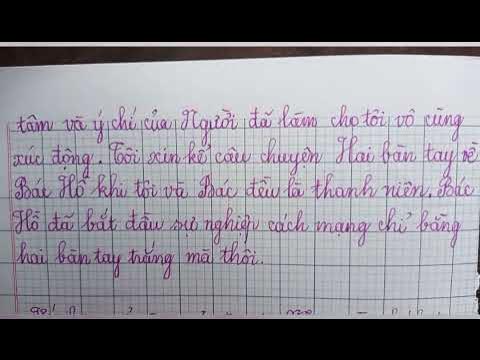 tâm và ý chí của Người đã làm cho tôi vô cùng
xúc động. Tôi xin kể câu chuyện Hai bàn tay về
Bác Hồ khi tôi và Bác đều là thanh niên. Bác
Hồ đã bắt đầu sự nghiệp cách mạng chỉ bằng
hai bàn tay trắng mà thôi.